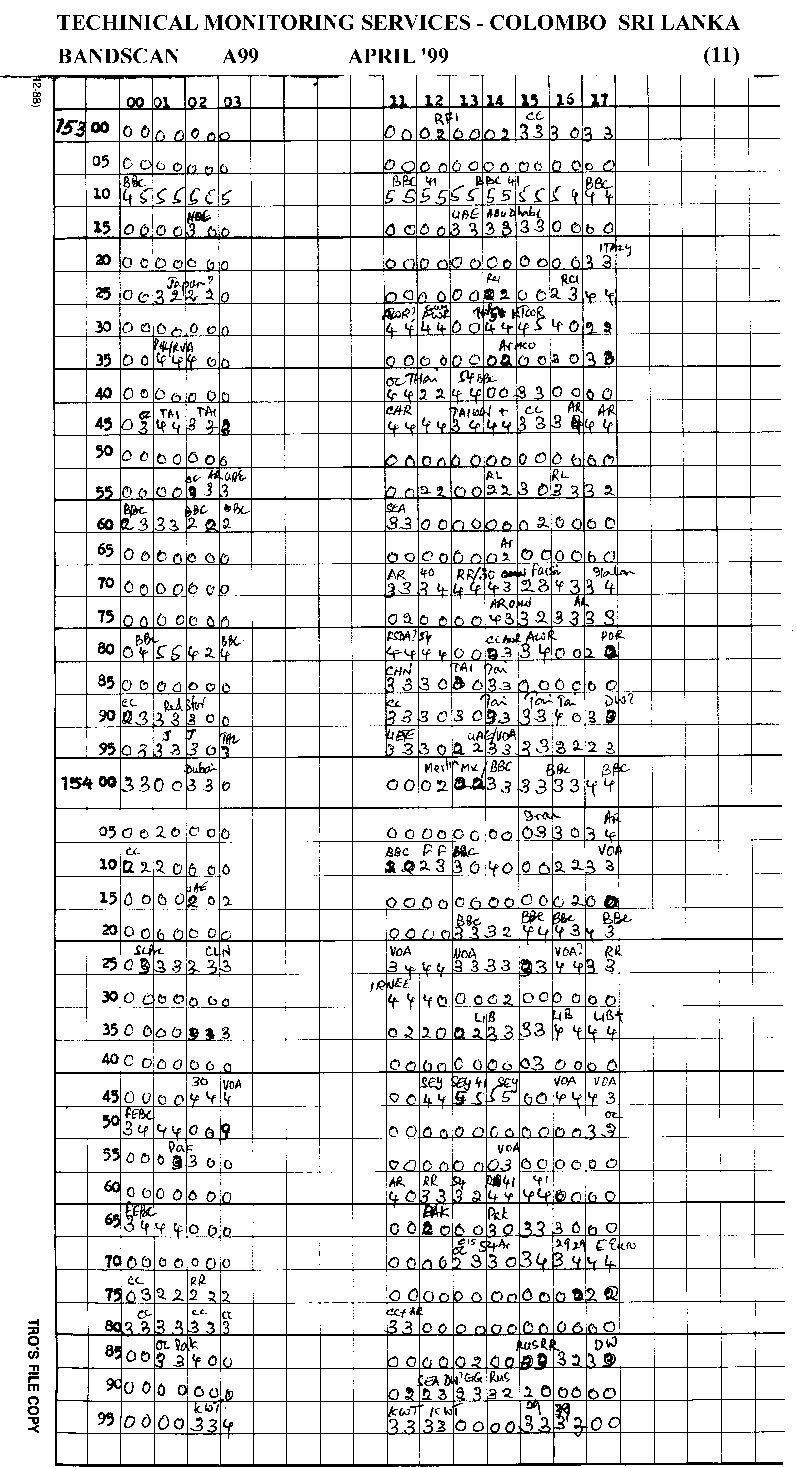 TECHINICAL MONITORING SERVICES - COLOMBO SRI LANKA
BANDSCAN A99 APRIL '99 (11)
12-88)
00 01 02 03 11 12 13 14 15 16 17
RFI CC
153 00 0 0 0 0 0 0 0 0 0 0 2 0 0 0 2 3 3 3 0 3 3
05 0 0 0 0 0 0 0 0 0 0 0 0 0 0 0 0 0 0 0 0 0
BBC BBC 41 BBC 41 BBC
10 4 5 5 5 5 5 5 5 5 5 5 5 5 5 5 5 5 5 4 4 4
UAE Abu Dhabi
15 0 0 0 0 3 0 0 0 0 0 0 3 3 3 3 3 3 0 0 0 0
ITALY
20 0 0 0 0 0 0 0 0 0 0 0 0 0 0 0 0 0 0 0 3 3
Japan? RCI
25 0 0 3 2 2 2 0 0 0 0 0 0 0 2 2 0 0 2 3 4 4
30 0 0 0 0 0 0 0 4 4 4 4 0 0 4 4 4 5 4 0 2 2
35 0 0 4 4 4 0 0 0 0 0 0 0 0 0 2 0 0 3 0 3 3
OC Thai 54 BBC
40 0 0 0 0 0 0 0 4 4 2 2 4 4 0 0 3 3 0 0 0 0
TAI TAI CAR TAIWAN + CC AR AR
45 0 3 4 4 3 3 4 4 4 4 3 4 4 4 3 3 3 4 4
50 0 0 0 0 0 0 0 0 0 0 0 0 0 0 0 0 0 0 0 0 0
RL RL
55 0 0 0 0 3 3 3 0 0 2 2 0 0 2 2 3 0 3 3 3 2
BBC BBC BBC SEA
60 2 3 3 3 2 2 2 3 3 0 0 0 0 0 0 0 2 0 0 0 0
Ar
65 0 0 0 0 0 0 0 0 0 0 0 0 0 0 2 0 0 0 0 0 0
AR 40 RR/30 Farsi Italian
70 0 0 0 0 0 0 0 3 3 3 4 4 4 4 3 2 3 4 3 3 4
AR
75 0 0 0 0 0 0 0 0 2 0 0 0 0 4 3 3 2 3 3 3 3
BBC BBC 54 AWR POR
80 0 4 5 5 4 2 4 4 4 4 4 0 0 3 3 3 4 0 0 2 2
CHN TAI Tai
85 0 0 0 0 0 0 0 3 3 3 0 3 0 3 3 0 0 0 0 0 0
CC CC Tai Tai Tai DW?
90 2 3 3 3 3 0 0 3 3 3 0 3 0 3 3 3 3 4 0 3 3
J J UAE UAE/VOA
95 0 3 3 3 3 0 3 3 3 3 0 2 2 3 3 3 3 3 2 2 3
Dubai Merlin Mx / BBC BBC BBC
154 00 3 3 0 0 3 3 0 0 0 0 2 2 2 3 3 3 3 3 3 4 4
Iran AR
05 0 0 2 0 0 0 0 0 0 0 0 0 0 0 0 0 3 3 0 3 4
CC BBC F F BBC VOA
10 2 2 2 0 0 0 0 2 2 2 3 3 0 4 0 0 0 2 2 3 3
UAE
15 0 0 0 0 2 0 2 0 0 0 0 0 0 0 0 0 0 0 2 0 0
BBC BBC BBC BBC
20 0 0 0 0 0 0 0 0 0 0 0 3 3 3 2 4 4 4 3 4 3
CLN VOA VOA VOA? RR
25 0 3 3 3 2 3 3 3 4 4 4 3 3 3 3 3 3 4 4 3 3
30 0 0 0 0 0 0 0 4 4 4 0 0 0 0 2 0 0 0 0 0 0
LIB LIB LIB+
35 0 0 0 0 3 3 3 0 2 2 0 0 2 2 3 3 3 4 4 4 4
40 0 0 0 0 0 0 0 0 0 0 0 0 0 0 0 0 3 0 0 0 0
30 VOA SEY SEY 41 SEY VOA VOA
45 0 0 0 0 4 4 4 0 0 4 4 5 5 5 5 0 0 4 4 4 3
FEBC OC
50 3 4 4 4 0 0 0 0 0 0 0 0 0 0 0 0 0 0 3 3
VOA
55 0 0 0 3 3 0 0 0 0 0 0 0 0 0 3 0 0 0 0 0 0
AR RR 54 41 41
60 0 0 0 0 0 0 0 4 0 3 3 3 2 4 4 4 4 0 0 0 0
FEBC PAK Pak
65 3 4 4 4 0 0 0 0 0 2 0 0 0 3 0 3 3 3 0 0 0
54 Ar 29 29 E Euro
70 0 0 0 0 0 0 0 0 0 0 0 2 3 3 0 3 4 3 4 4 4
CC RR
75 0 3 2 2 2 2 2 0 0 0 0 0 0 0 0 0 0 0 2 2 2
CC CC CC CC+ AR
80 3 3 3 3 3 3 3 3 3 0 0 0 0 0 0 0 0 0 0 0 0
OC Pak RUS RR DW
85 0 0 3 3 4 0 0 0 0 0 0 0 2 0 0 3 3 3 2 3 3
SEA DW RUS
90 0 0 0 0 0 0 0 0 2 2 3 3 3 3 2 2 0 0 0 0 0
KWT KWT KWT 29 29
95 0 0 0 0 3 3 4 3 3 3 3 0 0 0 0 3 3 3 3 0 0
TRO'S FILE COPY